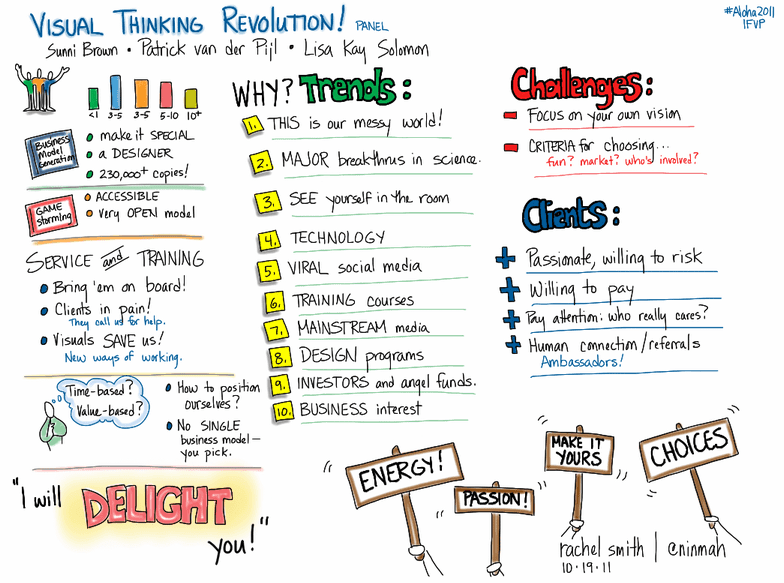 VISUAL THINKING REVOLUTION! PANEL
#Aloha2011
IFVP
Sunni Brown • Patrick van der Pijl • Lisa Kay Solomon
<1 3-5 3-5 5-10 10+
Business
Model
Generation
make it SPECIAL
a DESIGNER
230,000+ copies!
GAME
Storming
ACCESSIBLE
very OPEN model
SERVICE and TRAINING
Bring 'em on board!
Clients in pain!
They call us for help.
Visuals SAVE us!
New ways of working.
Time-based?
Value-based?
How to position
ourselves?
No SINGLE
business model—
you pick.
"I will
DELIGHT
you!"
WHY? Trends:
1. THIS is our messy world!
2. MAJOR breakthrus in science.
3. SEE yourself in the room
4. TECHNOLOGY
5. VIRAL social media
6. TRAINING courses
7. MAINSTREAM media
8. DESIGN programs
9. INVESTORS and angel funds.
10. BUSINESS interest
Challenges:
FOCUS on your own vision
CRITERIA for choosing...
fun? market? who's involved?
Clients:
Passionate, willing to risk
Willing to pay
Pay attention: who really cares?
Human connection/referrals
Ambassadors!
ENERGY!
PASSION!
MAKE IT
YOURS
CHOICES
rachel smith | @ninmah
10·19·11